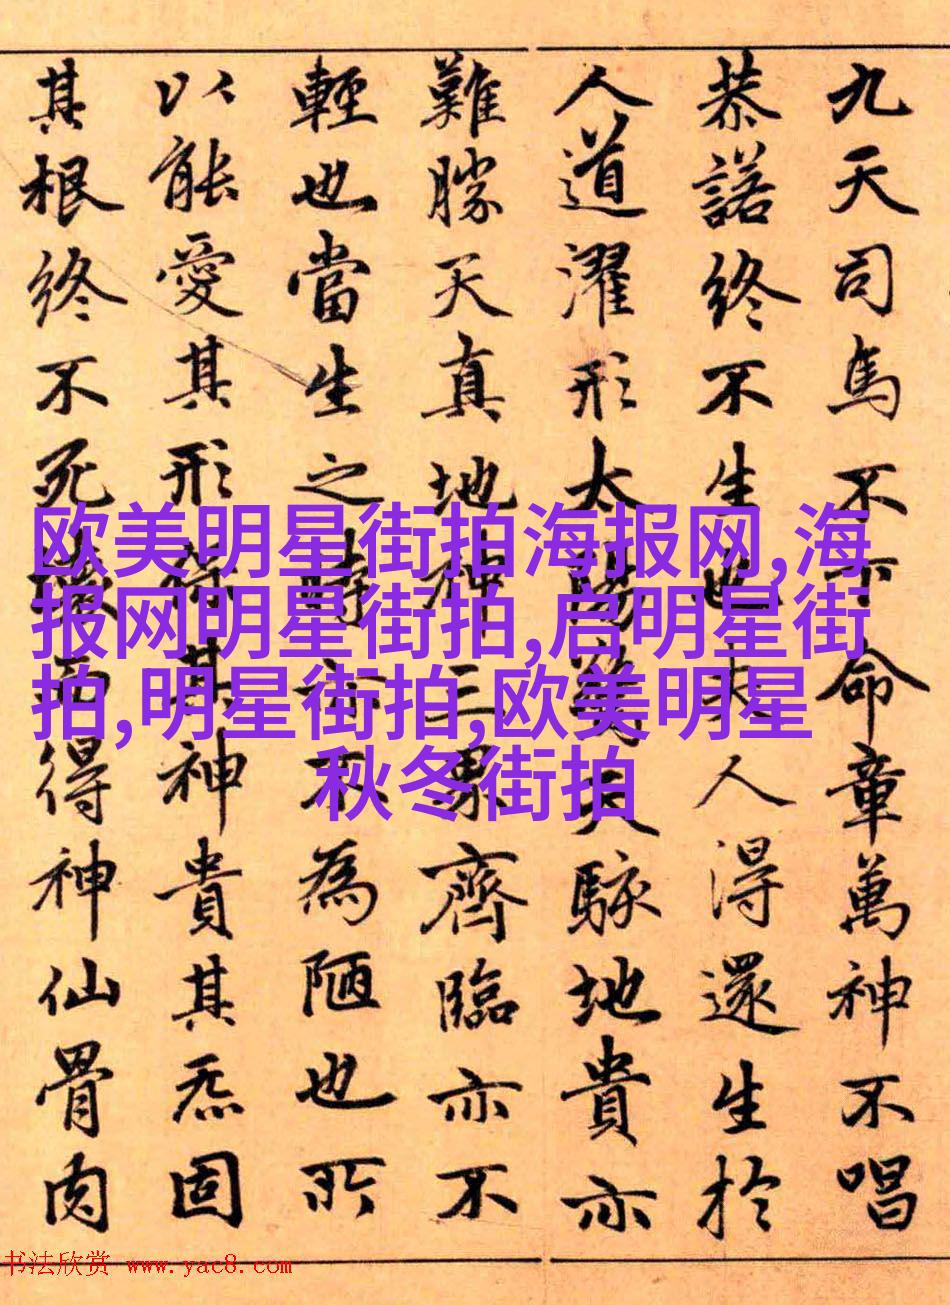 九天司馬不下命章萬神不唱
恭諾終不生也夫人得還生於
人道濯形太陽驚天駭地貴亦
難勝天真地神三界齊臨亦不
輕也當生之時亦不為陋也所
以能愛其形保其神貴其炁固
其根終不死壞而得神仙骨肉
欧美明星街拍海报网,海
报网明星街拍,启明星街
拍,明星街拍,欧美明星
秋冬街拍
书法欣赏 www.yac8.com